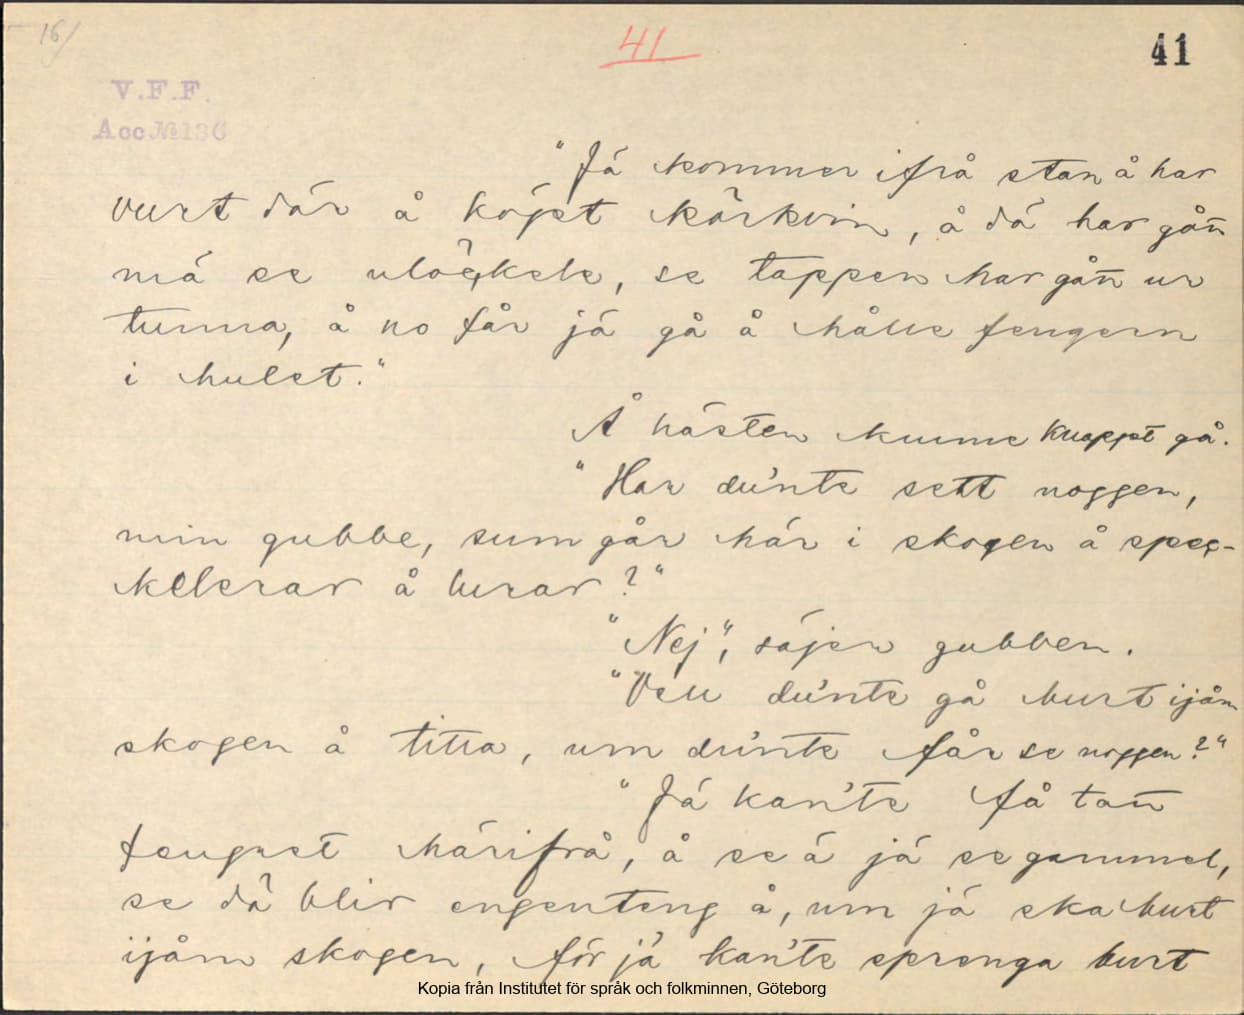 16/
41
41
V.F.F.
Acc № 136
"Já kommer ifrå stan å har
vurt dár å köpt körkvin, å dá har gån̄
má se ulökkele, se tappen har gån̄ ur
tunna, å no får já gå å hålle fengern
i hulet."
Å hásten kunne knappt gå.
"Har du'nte sett noggen,
min gubbe, sum går hár i skogen å spec-
kelerar å lurar?"
"Nej", sájer gubben.
"Vell du'nte gå burt ijåm
skogen å titta, um du'nte får se noggen?"
"Já kan'te få tan̄
fengret hárifrå, å se á já se gammel,
se dá blir engenteng å, um já ska burt
ijåm skogen, för já kan'te sprenga burt
Kopia från Institutet för språk och folkminnen, Göteborg